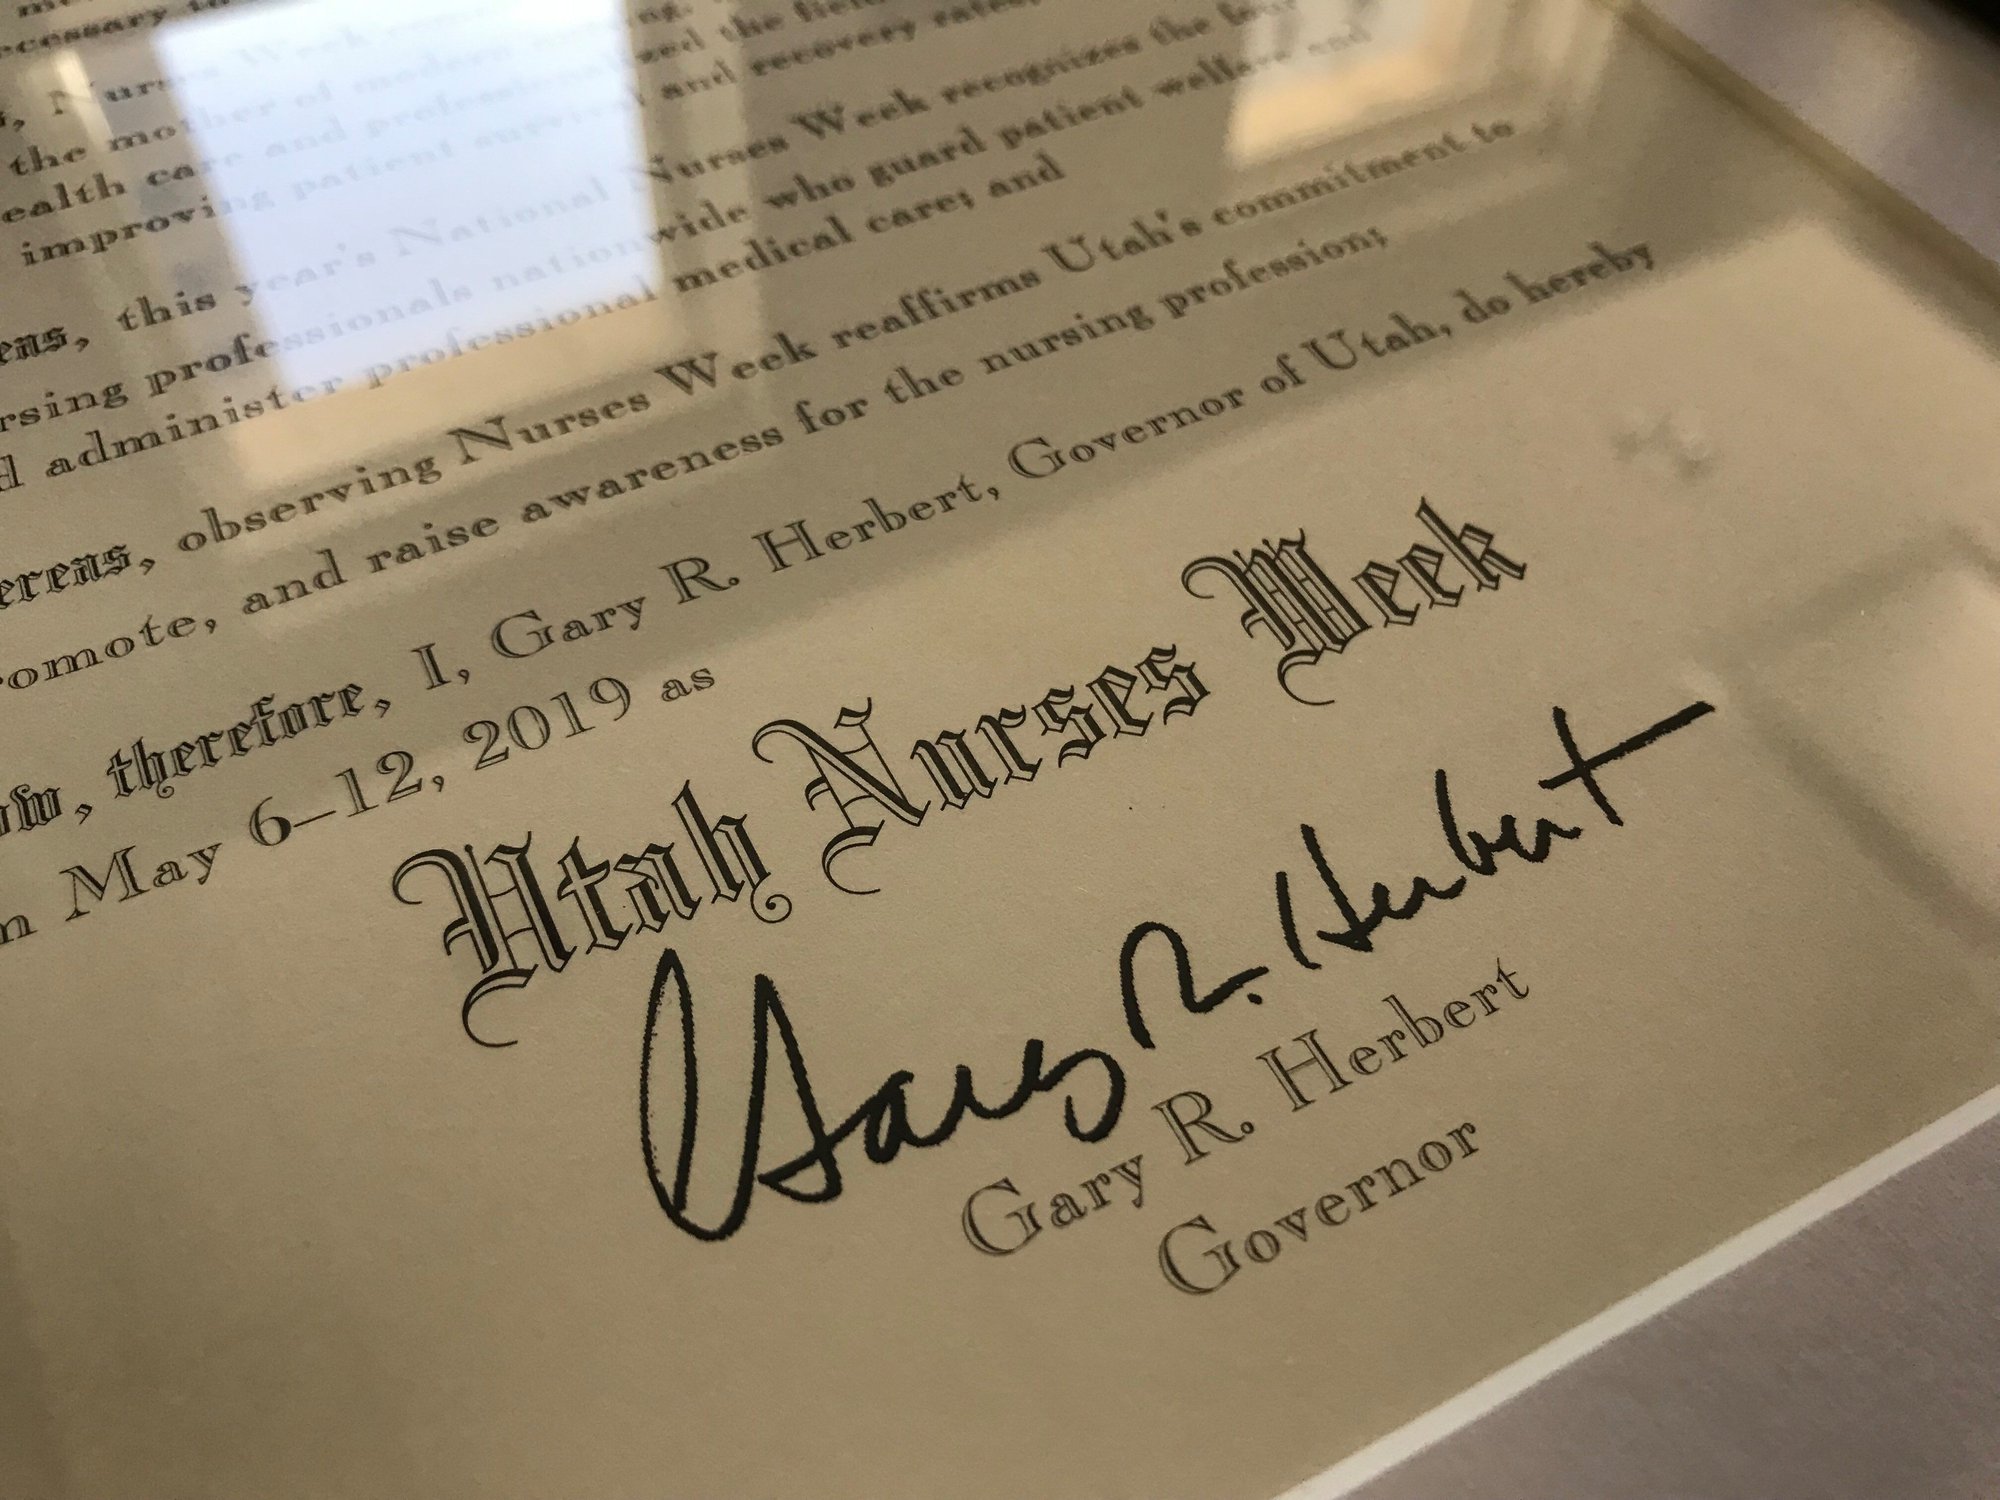 , Nurses Week
the mother of modern
ealth care and professionalized the field
improving patient survival and recovery rates
eas, this year's National Nurses Week recognizes the
rsing professionals nationwide who guard patient welfare and
d administer professional medical care; and
ereas, observing Nurses Week reaffirms Utah's commitment to
romote, and raise awareness for the nursing profession;
ow, therefore, I, Gary R. Herbert, Governor of Utah, do hereby
n May 6–12, 2019 as
Utah Nurses Week
Gary R. Herbert
Gary R. Herbert
Governor